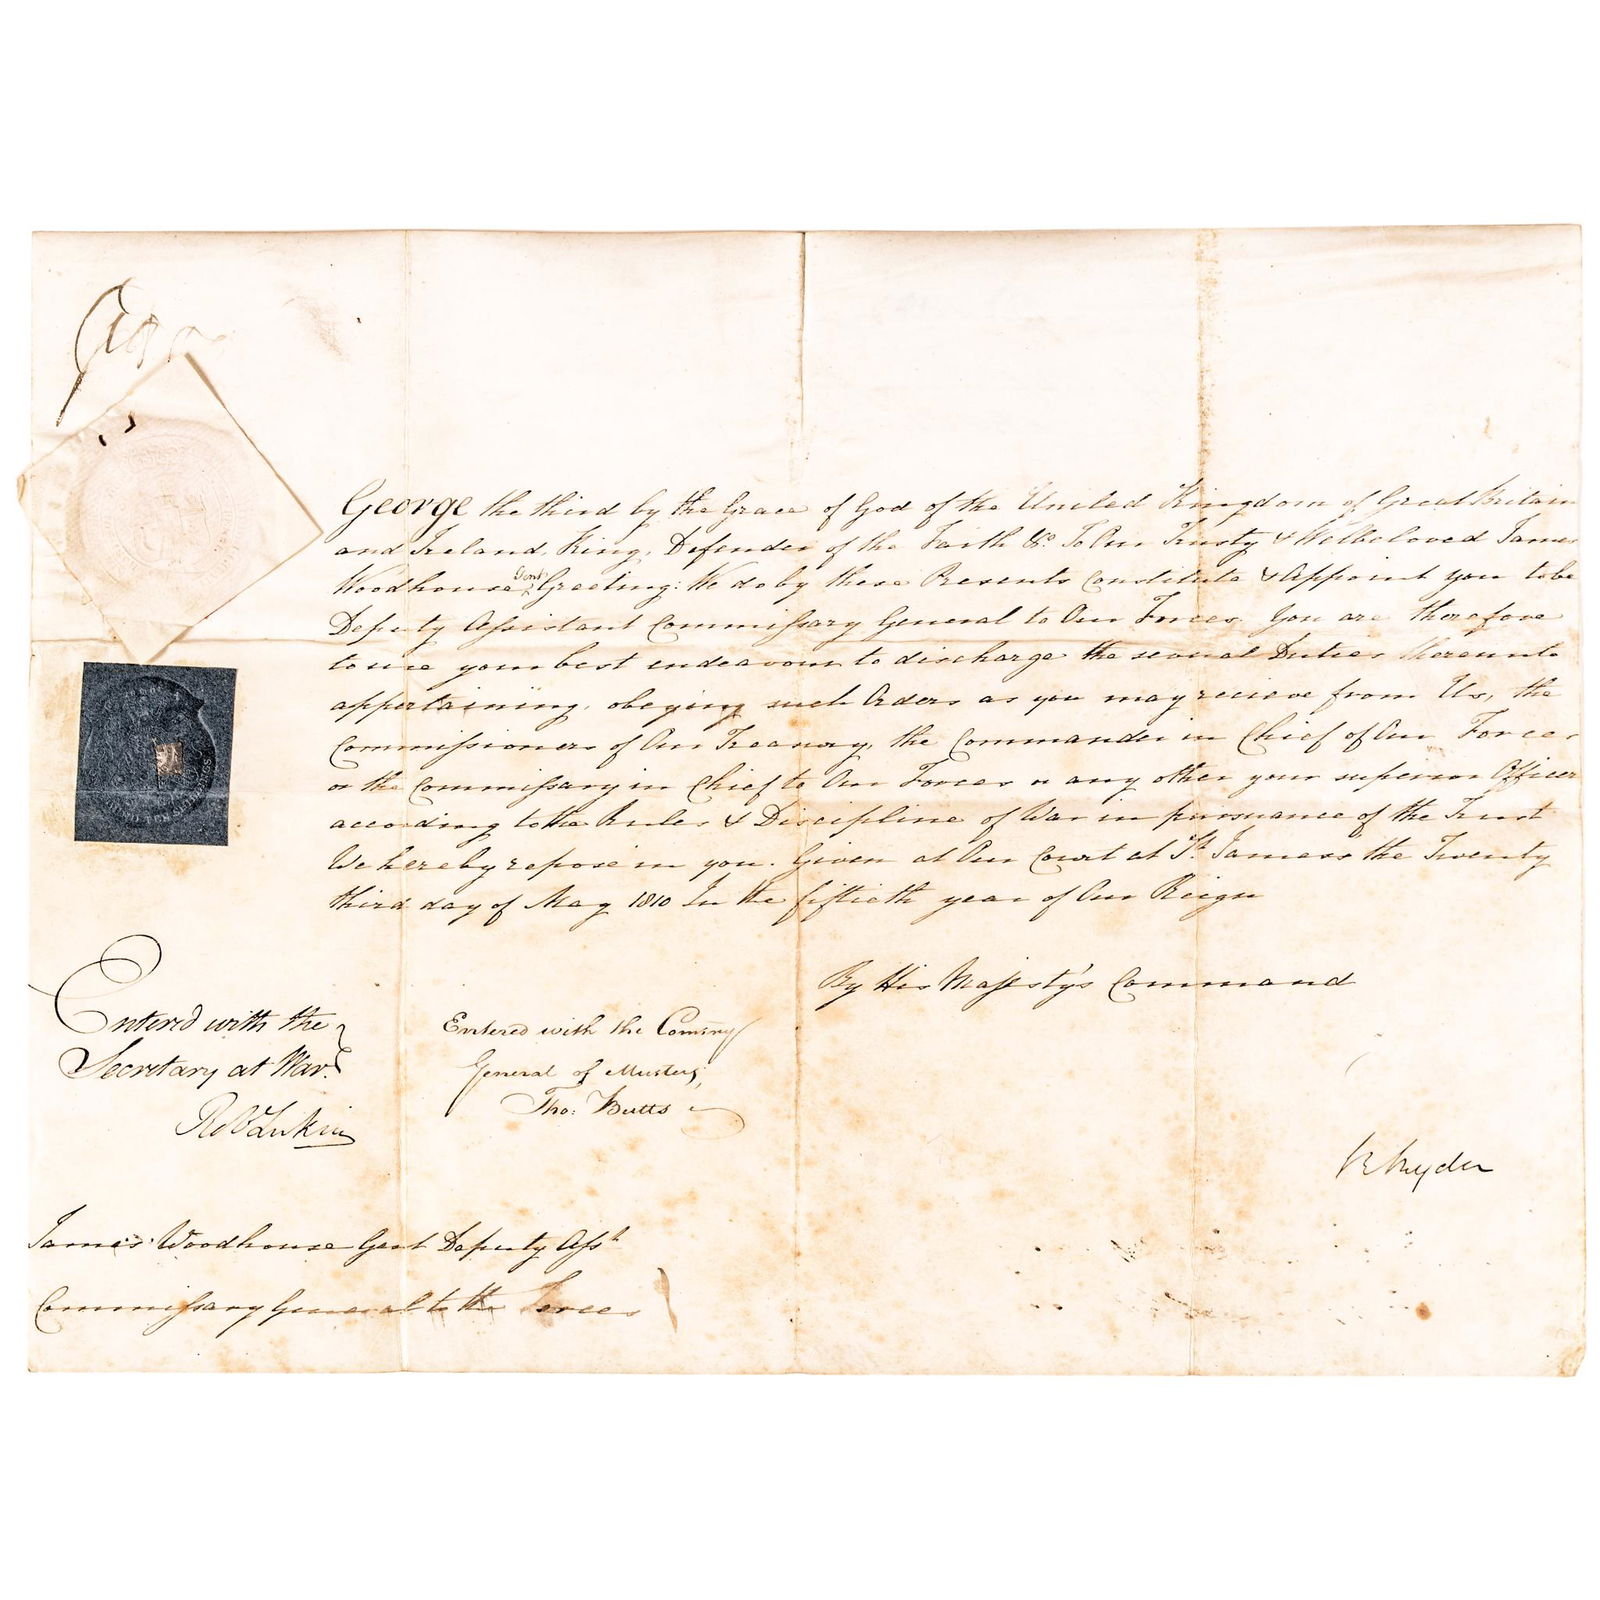 George the third by the Grace of God of the United Kingdom of Great Britain
and Ireland, King, Defender of the Faith &c. To Our Trusty & Welbeloved James
Woodhouse Gent. Greeting: We do by these Presents Constitute & Appoint you to be
Deputy Assistant Commissary General to Our Forces. You are therefore
to use your best endeavours to discharge the several Duties thereunto
appertaining, obeying such Orders as you may recieve from Us, the
Commissioners of Our Treasury, the Commander in Chief of Our Forces
or the Commissary in Chief to Our Forces or any other your superior Officer
according to the Rules & Discipline of War in pursuance of the Trust
We hereby repose in you. Given at Our Court at St. Jamess the Twenty
third day of May 1810 In the fiftieth year of Our Reign
By His Majesty's Command
Entered with the
Secretary at War.
Robt Lukin
Entered with the Comsry
General of Musters,
Tho: Butts
R Ryder
James Woodhouse Gent Deputy Asst
Commissary General to the Forces